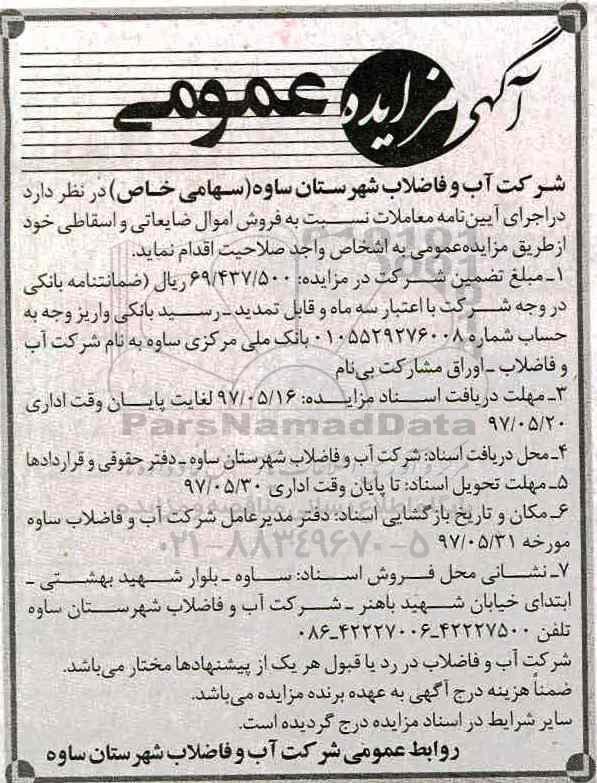 آگهی مزایده عمومی
شرکت آب و فاضلاب شهرستان ساوه (سهامی خاص) در نظر دارد
در اجرای آیین‌نامه معاملات نسبت به فروش اموال ضایعاتی و اسقاطی خود
از طریق مزایده عمومی به اشخاص واجد صلاحیت اقدام نماید.
۱ـ مبلغ تضمین شرکت در مزایده: ۶۹/۴۳۷/۵۰۰ ریال (ضمانتنامه بانکی
در وجه شرکت با اعتبار سه ماه و قابل تمدید ـ رسید بانکی واریز وجه به
حساب شماره ۰۱۰۵۵۲۹۲۷۶۰۰۸ بانک ملی مرکزی ساوه به نام شرکت آب
و فاضلاب ـ اوراق مشارکت بی‌نام
۳ـ مهلت دریافت اسناد مزایده: ۹۷/۰۵/۱۶ لغایت پایان وقت اداری
۹۷/۰۵/۲۰
ParsNamadData
۴ـ محل دریافت اسناد: شرکت آب و فاضلاب شهرستان ساوه ـ دفتر حقوقی و قراردادها
۵ـ مهلت تحویل اسناد: تا پایان وقت اداری ۹۷/۰۵/۳۰
۶ـ مکان و تاریخ بازگشایی اسناد: دفتر مدیرعامل شرکت آب و فاضلاب ساوه
مورخه ۹۷/۰۵/۳۱
۰۲۱-۸۸۳۴۹۶۷۰-۵
۷ـ نشانی محل فروش اسناد: ساوه ـ بلوار شهید بهشتی ـ
ابتدای خیابان شهید باهنر ـ شرکت آب و فاضلاب شهرستان ساوه
تلفن ۴۲۲۲۷۵۰۰ـ۰۸۶ـ۴۲۲۲۷۰۰۶
شرکت آب و فاضلاب در رد یا قبول هر یک از پیشنهادها مختار می‌باشد.
ضمناً هزینه درج آگهی به عهده برنده مزایده می‌باشد.
سایر شرایط در اسناد مزایده درج گردیده است.
روابط عمومی شرکت آب و فاضلاب شهرستان ساوه